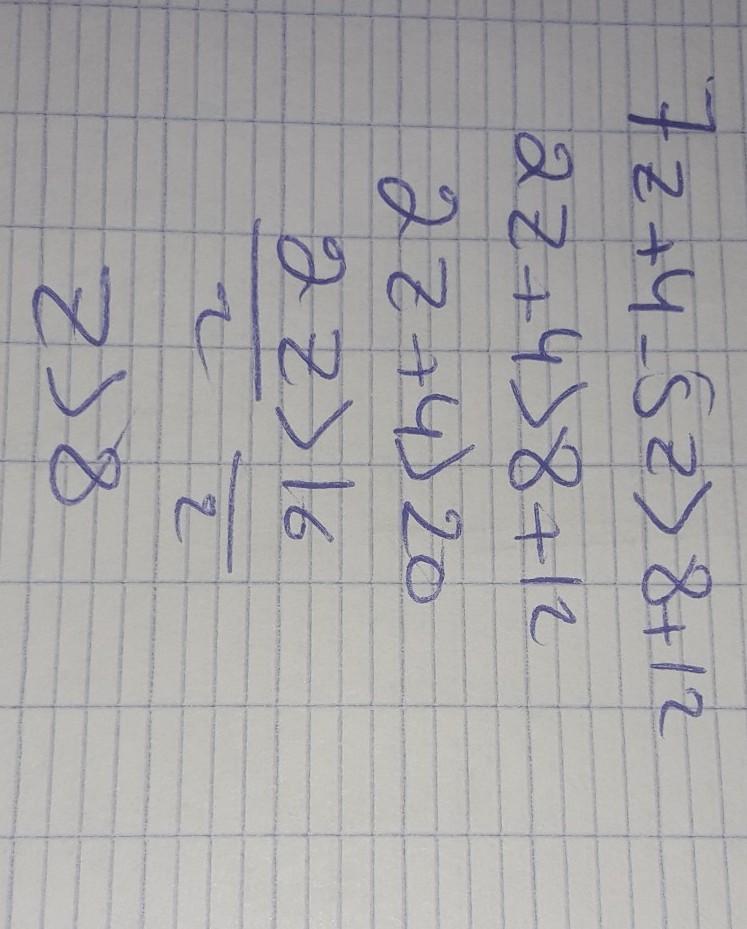 7z+4-5z>8+12
2z+4>8+12
2z+4>20
2z>16
2 2
z>8